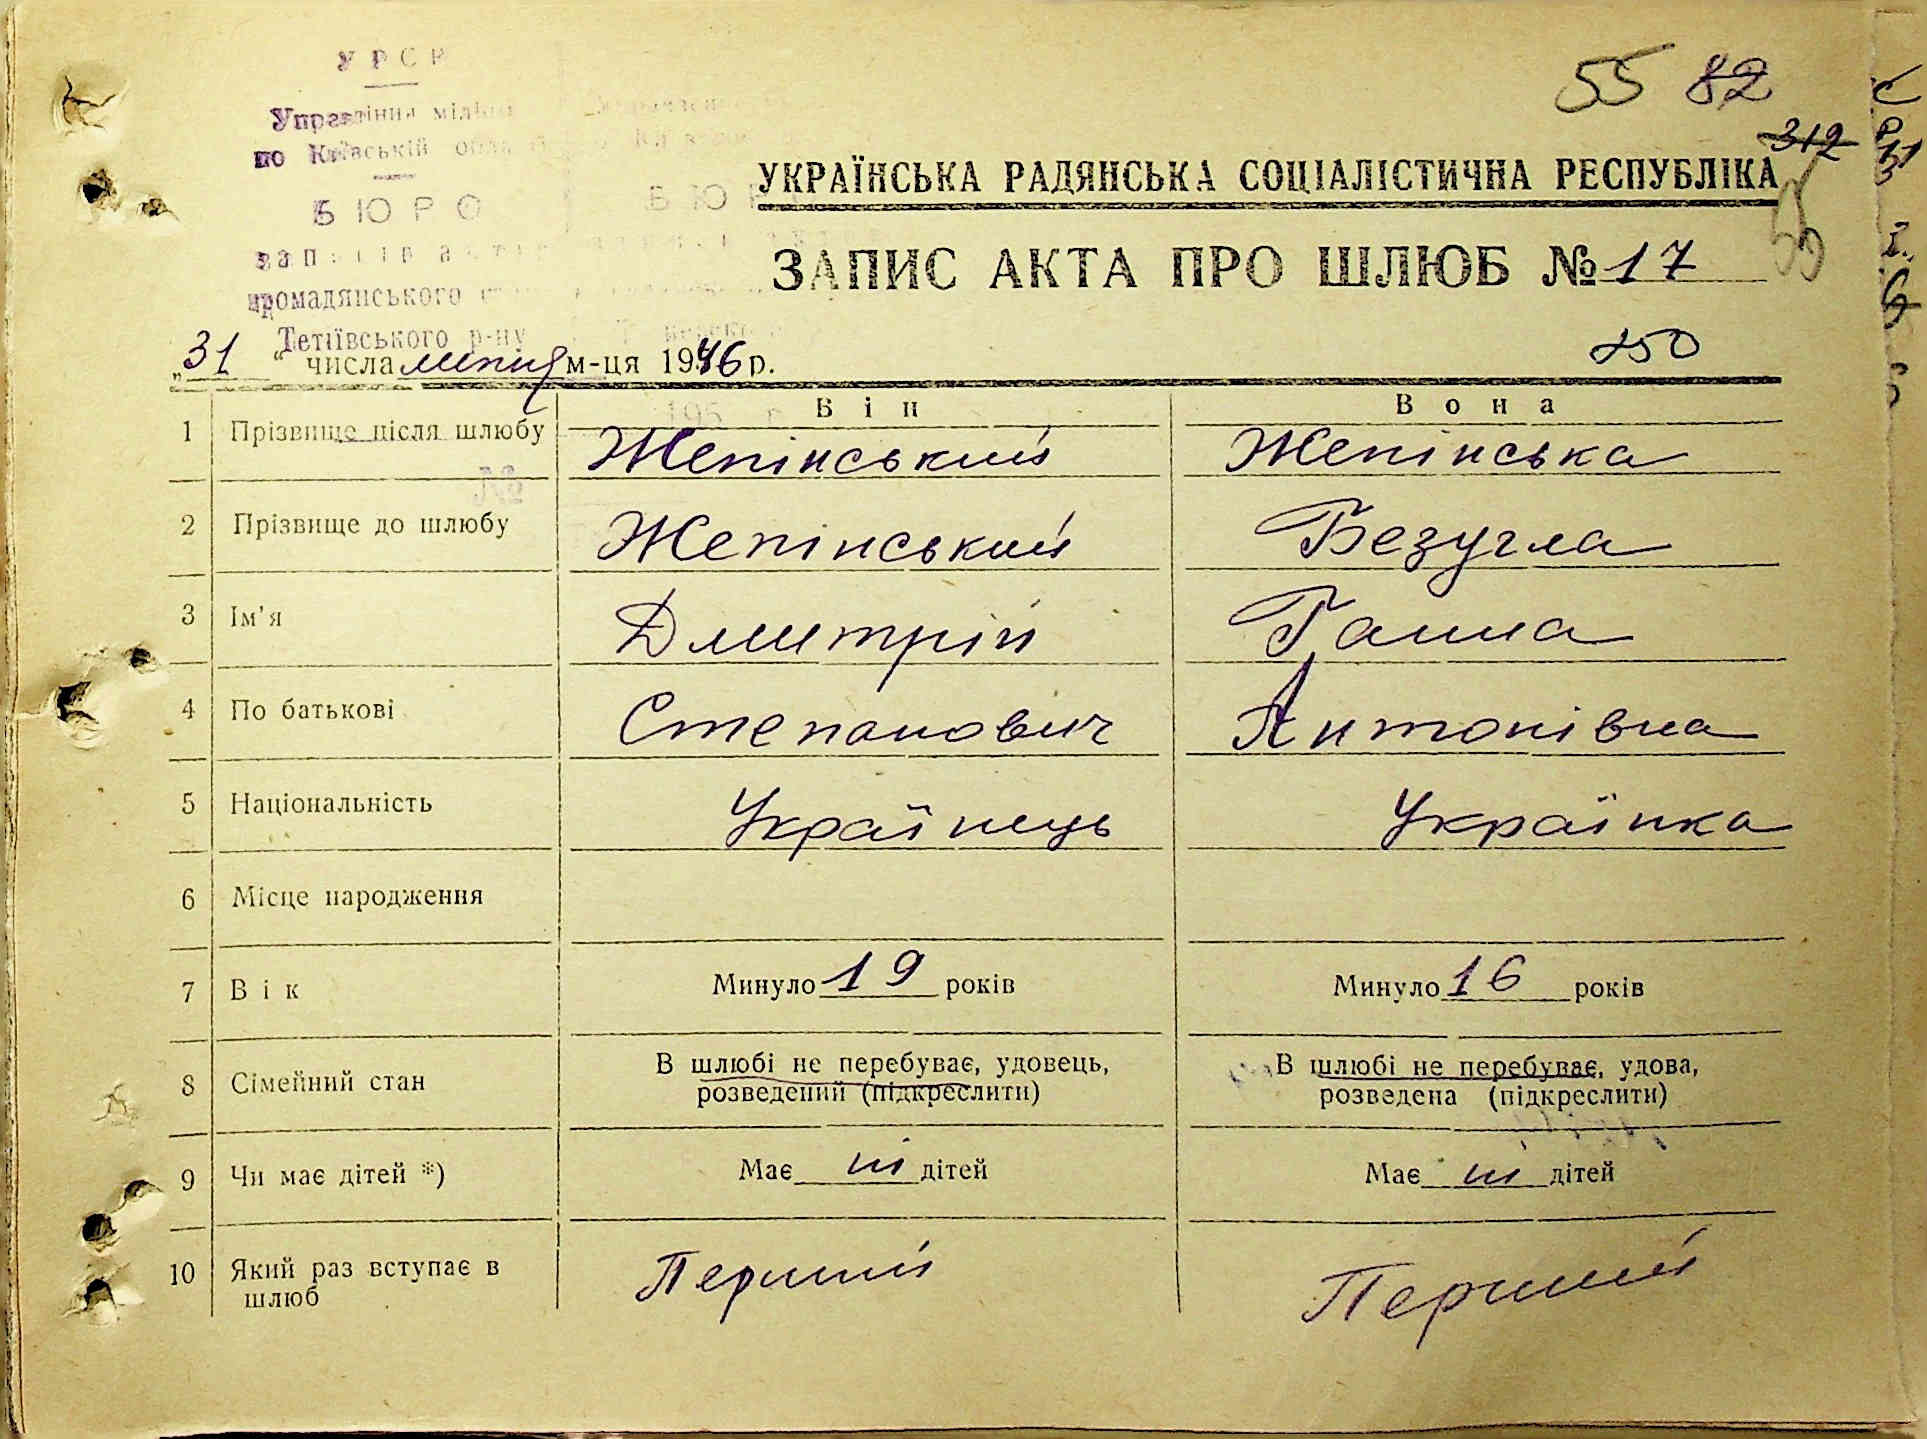 УРСР
55 82
Управління міліції
312
по Київській
УКРАЇНСЬКА РАДЯНСЬКА СОЦІАЛІСТИЧНА РЕСПУБЛІКА
55
БЮРО
записів актів
ЗАПИС АКТА ПРО ШЛЮБ № 17
громадянського
Тетіївського р-ну
250
„31“ числа липня м-ця 1946 р.
Він Вона
1 Прізвище після шлюбу Жепінський Жепінська
2 Прізвище до шлюбу Жепінський Безугла
3 Ім'я Дмитрій Ганна
4 По батькові Степанович Антонівна
5 Національність Українець Українка
6 Місце народження
7 Вік Минуло 19 років Минуло 16 років
8 Сімейний стан В шлюбі не перебуває, удовець, В шлюбі не перебуває, удова,
розведений (підкреслити) розведена (підкреслити)
9 Чи має дітей *) Має ні дітей Має ні дітей
10 Який раз вступає в Перший Перший
шлюб